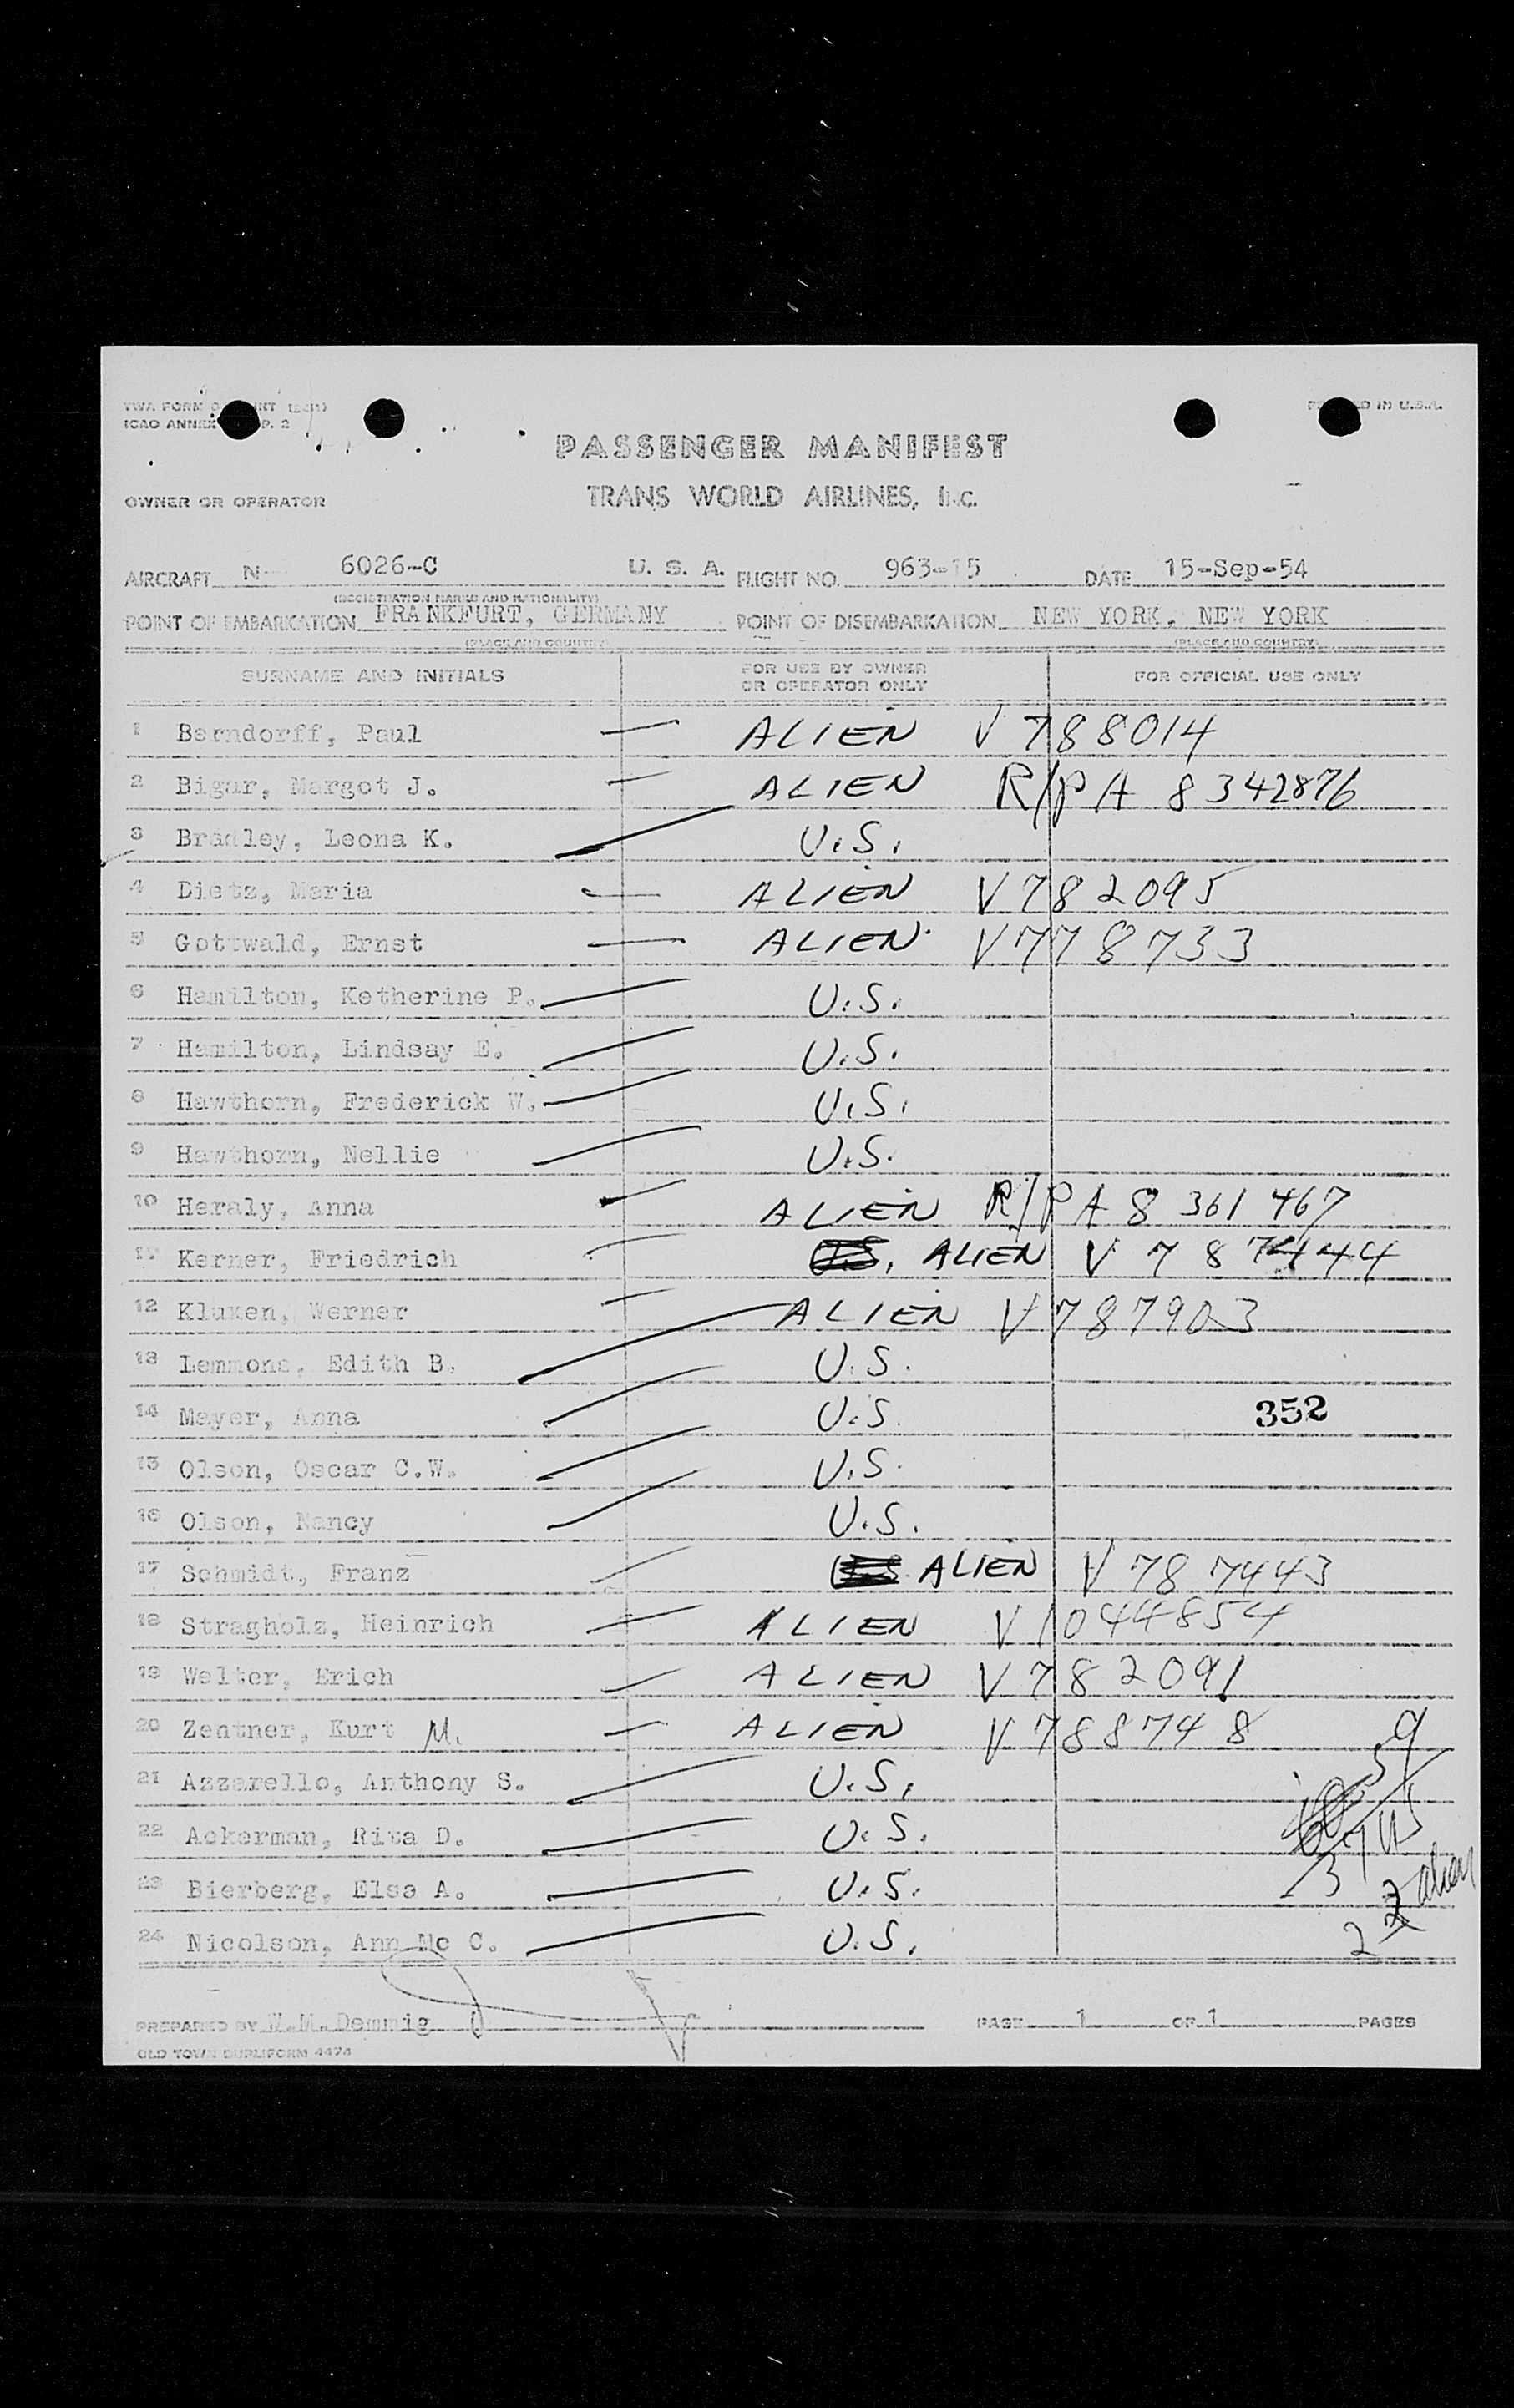 TWA FORM
ICAO ANNEX P. 2
IN U.S.A.
PASSENGER MANIFEST
OWNER OR OPERATOR TRANS WORLD AIRLINES, INC.
AIRCRAFT N 6026-C U. S. A. FLIGHT NO. 963-15 DATE 15-Sep-54
(REGISTRATION MARKS AND NATIONALITY)
POINT OF EMBARKATION FRANKFURT, GERMANY POINT OF DISEMBARKATION NEW YORK, NEW YORK
(PLACE AND COUNTRY) (PLACE AND COUNTRY)
SURNAME AND INITIALS FOR USE BY OWNER OR OPERATOR ONLY FOR OFFICIAL USE ONLY
1 Berndorff, Paul ALIEN V 788014
2 Bigar, Margot J. ALIEN R/P A 8342876
3 Bradley, Leona K. U.S.
4 Dietz, Maria ALIEN V782095
5 Gottwald, Ernst ALIEN V778733
6 Hamilton, Ketherine P. U.S.
7 Hamilton, Lindsay E. U.S.
8 Hawthorn, Frederick W. U.S.
9 Hawthorn, Nellie U.S.
10 Heraly, Anna ALIEN R/P A 8 361 467
11 Kerner, Friedrich ALIEN V 787444
12 Kluxen, Werner ALIEN V787903
13 Lemmons, Edith B. U.S.
14 Mayer, Anna U.S. 352
15 Olson, Oscar C.W. U.S.
16 Olson, Nancy U.S.
17 Schmidt, Franz ALIEN V 787443
18 Stragholz, Heinrich ALIEN V 1044854
19 Welter, Erich ALIEN V782091
20 Zentner, Kurt M. ALIEN V788748
21 Azzarello, Anthony S. U.S.
22 Ackerman, Rita D. U.S.
23 Bierberg, Elsa A. U.S. alien
24 Nicolson, Ann Mc C. U.S.
PREPARED BY W.M. Demmig PAGE 1 OF 1 PAGES
OLD TOWN DUPLIFORM 4474